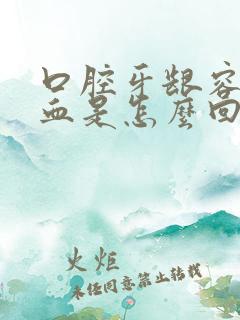 口腔牙龈容
血是怎麽回
火炬
未经同意禁止转载